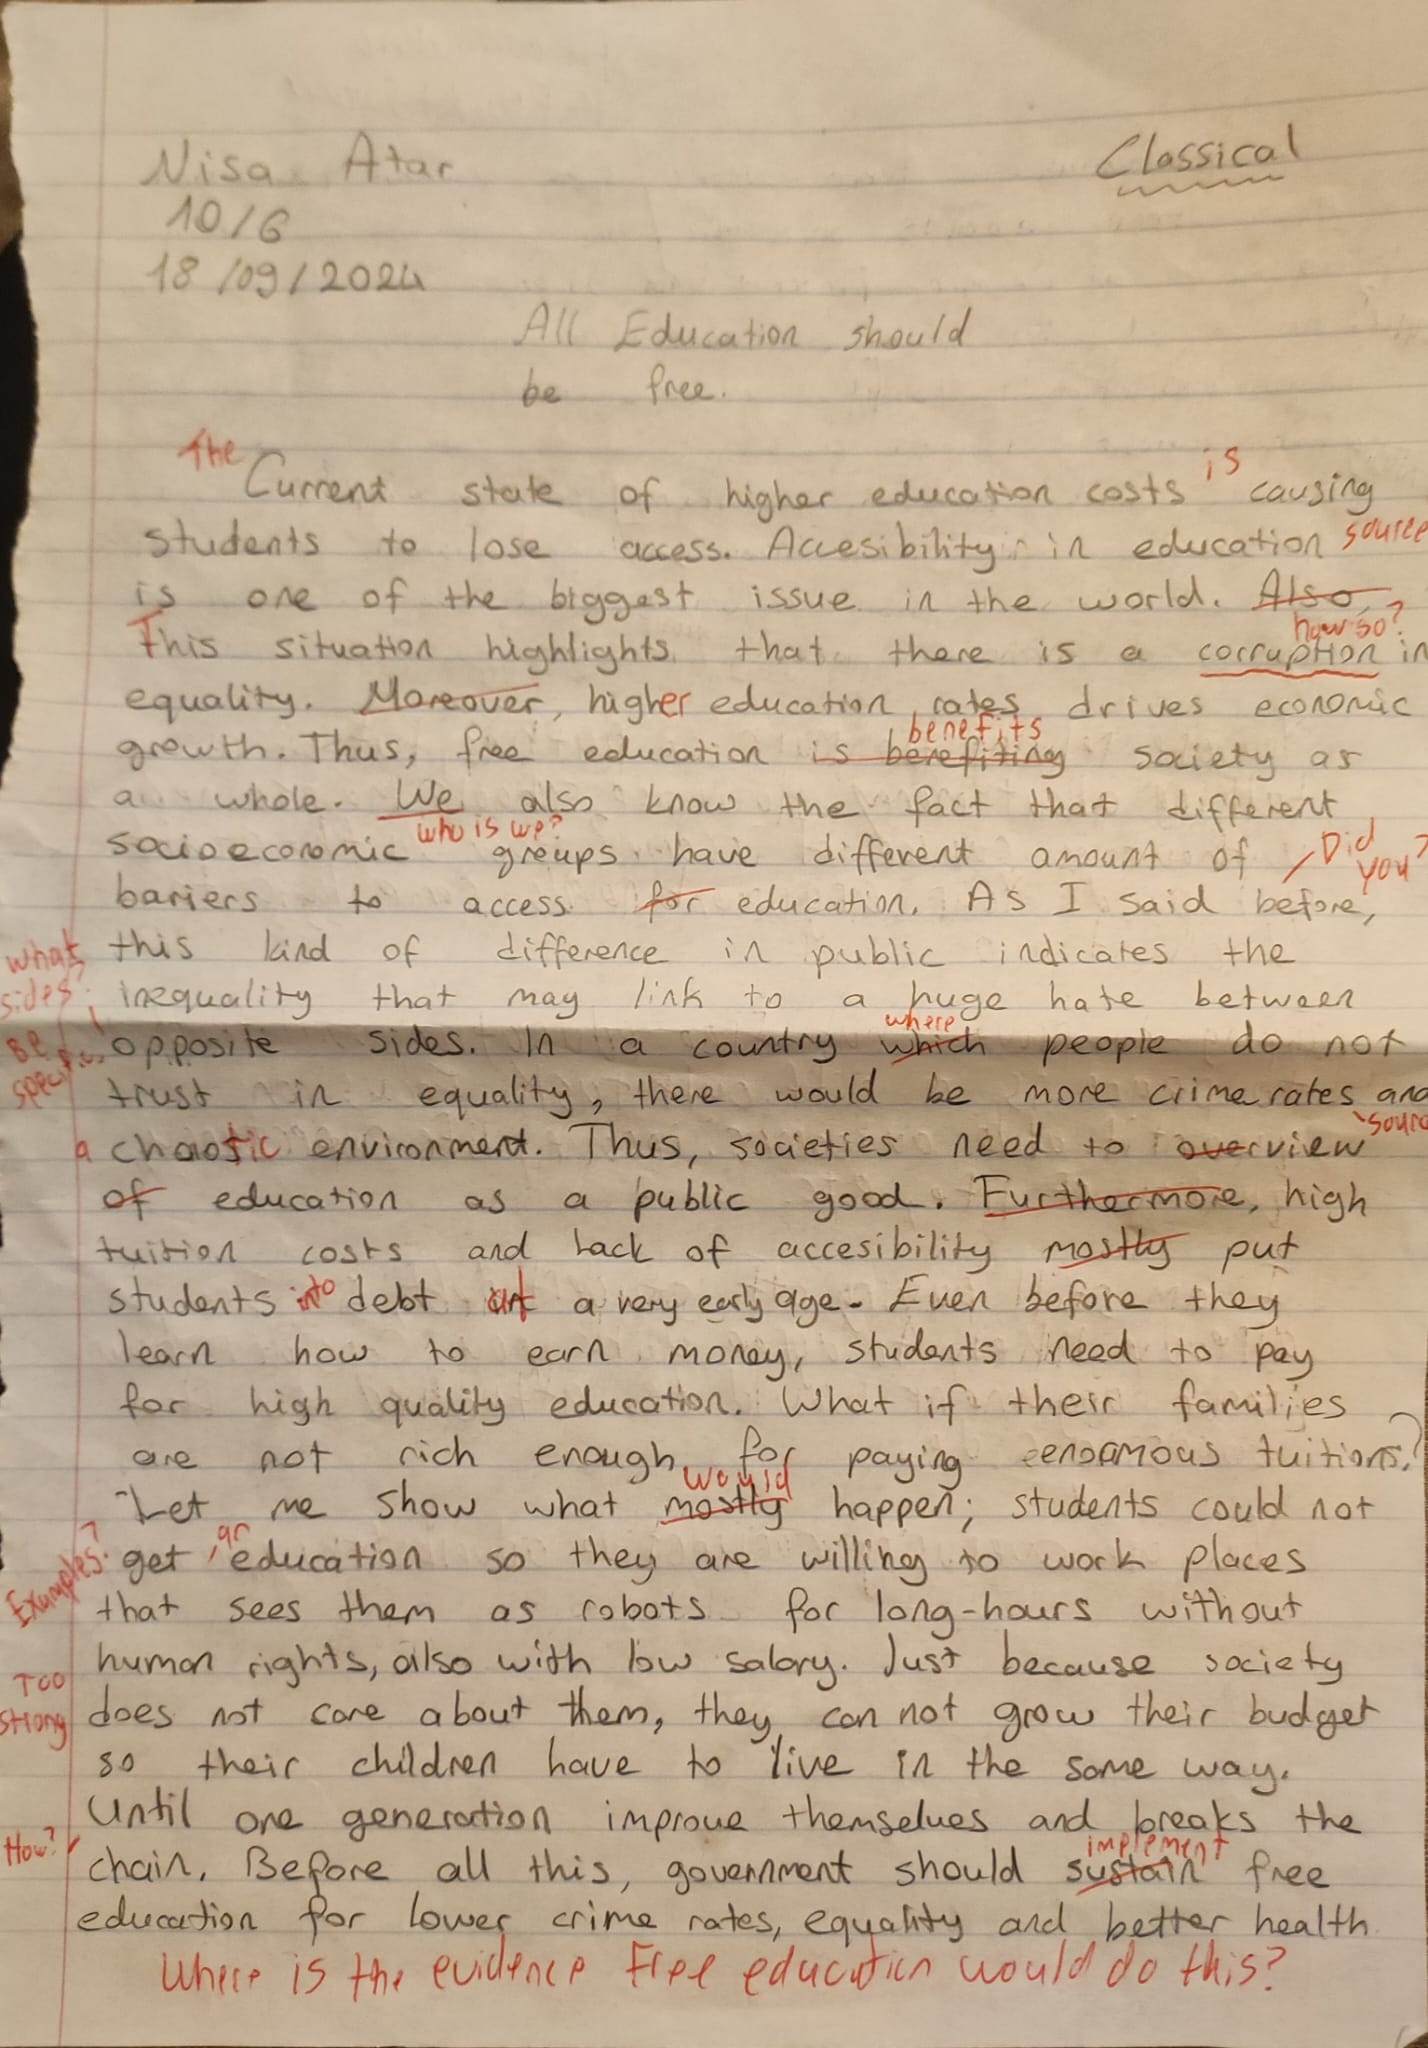 Nisa Atar
Classical
10/G
18/09/2024
All Education should
be free.
The Current state of higher education costs is causing
students to lose access. Accesibility in education source
is one of the biggest issue in the world. Also,
This situation highlights that there is a corruption in
how so?
equality. Moreover, higher education rates drives economic
growth. Thus, free education is benefiting society as
benefits
a whole. We also know the fact that different
who is we?
socioeconomic groups have different amount of
Did you?
barriers to access for education. As I said before,
this kind of difference in public indicates the
what sides? Be specific!
inequality that may link to a huge hate between
opposite sides. In a country which people do not
where
trust in equality, there would be more crime rates and
source
a chaotic environment. Thus, societies need to overview
of education as a public good. Furthermore, high
tuition costs and lack of accesibility mostly put
students into debt at a very early age. Even before they
learn how to earn money, students need to pay
for high quality education. What if their families
are not rich enough for paying enormous tuitions?
Let me show what mostly happen; students could not
would
get an education so they are willing to work places
Examples?
that sees them as robots for long-hours without
human rights, also with low salary. Just because society
Too strong
does not care about them, they can not grow their budget
so their children have to live in the same way.
Until one generation improve themselves and breaks the
How?
chain. Before all this, government should sustain free
implement
education for lower crime rates, equality and better health
Where is the evidence Free education would do this?